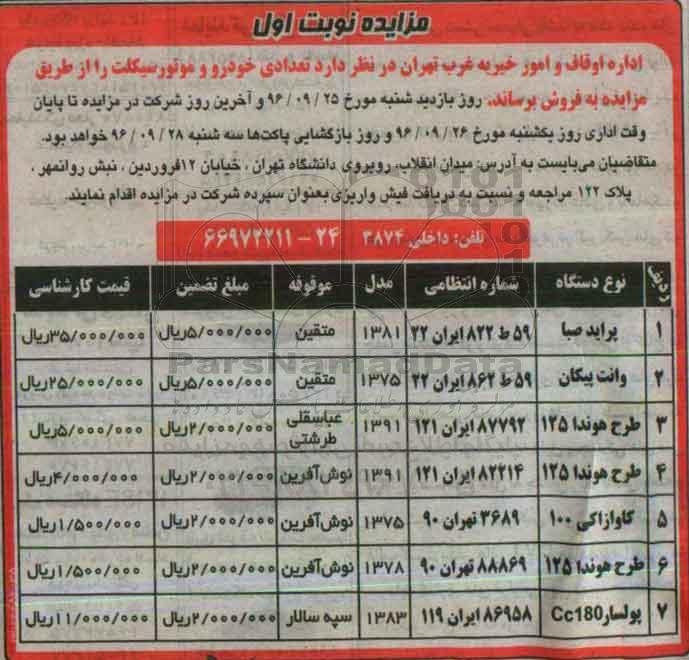 مزایده نوبت اول
اداره اوقاف و امور خیریه غرب تهران در نظر دارد تعدادی خودرو و موتورسیکلت را از طریق
مزایده به فروش برساند. روز بازدید شنبه مورخ ۹۶/۰۹/۲۵ و آخرین روز شرکت در مزایده تا پایان
وقت اداری روز یکشنبه مورخ ۹۶/۰۹/۲۶ و روز بازگشایی پاکت‌ها سه شنبه ۹۶/۰۹/۲۸ خواهد بود.
متقاضیان می‌بایست به آدرس: میدان انقلاب، روبروی دانشگاه تهران، خیابان ۱۲فروردین، نبش روانمهر،
پلاک ۱۲۲ مراجعه و نسبت به دریافت فیش واریزی بعنوان سپرده شرکت در مزایده اقدام نمایند.
تلفن: داخلی ۳۸۷۴ ۲۴ - ۶۶۹۷۲۲۱۱
ردیف نوع دستگاه شماره انتظامی مدل موقوفه مبلغ تضمین قیمت کارشناسی
۱ پراید صبا ۵۹ ط ۸۲۲ ایران ۲۲ ۱۳۸۱ متقین ۵/۰۰۰/۰۰۰ریال ۳۵/۰۰۰/۰۰۰ریال
۲ وانت پیکان ۵۹ ط ۸۶۲ ایران ۲۲ ۱۳۷۵ متقین ۵/۰۰۰/۰۰۰ریال ۲۵/۰۰۰/۰۰۰ریال
۳ طرح هوندا ۱۲۵ ۸۷۷۹۲ ایران ۱۲۱ ۱۳۹۱ عباسقلی طرشتی ۲/۰۰۰/۰۰۰ریال ۵/۰۰۰/۰۰۰ریال
۴ طرح هوندا ۱۲۵ ۸۲۲۱۴ ایران ۱۲۱ ۱۳۹۱ نوش‌آفرین ۲/۰۰۰/۰۰۰ریال ۴/۰۰۰/۰۰۰ریال
۵ کاوازاکی ۱۰۰ ۳۶۸۹ تهران ۹۰ ۱۳۷۵ نوش‌آفرین ۲/۰۰۰/۰۰۰ریال ۱/۵۰۰/۰۰۰ریال
۶ طرح هوندا ۱۲۵ ۸۸۸۶۹ تهران ۹۰ ۱۳۷۸ نوش‌آفرین ۲/۰۰۰/۰۰۰ریال ۱/۵۰۰/۰۰۰ریال
۷ پولسار Cc180 ۸۶۹۵۸ ایران ۱۱۹ ۱۳۸۳ سپه سالار ۲/۰۰۰/۰۰۰ریال ۱۱/۰۰۰/۰۰۰ریال
ParsNamadData